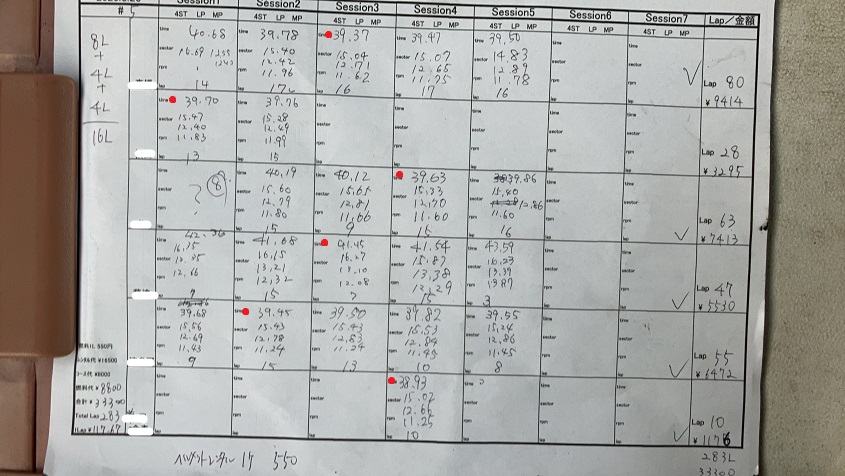 # 5 Session1 Session2 Session3 Session4 Session5 Session6 Session7 Lap／金額
4ST LP MP 4ST LP MP 4ST LP MP 4ST LP MP 4ST LP MP 4ST LP MP 4ST LP MP
8L
+
4L
+
4L
16L
time 40.68 time 39.78 time 39.37 time 39.47 time 39.50 time time
sector sector 15.40 sector 15.04 sector 15.07 sector 14.83 sector sector
12.42 12.71 12.65 12.89
rpm rpm 11.96 rpm 11.62 rpm 11.75 rpm 11.78 rpm rpm
lap 14 lap lap 16 lap 17 lap 16 lap lap
Lap 80
¥9414
time 39.70 time 39.76 time time time time time
sector 15.47 sector 15.28 sector sector sector sector sector
12.40 12.49
rpm 11.83 rpm 11.99 rpm rpm rpm rpm rpm
lap 13 lap 15 lap lap lap lap lap
Lap 28
¥3295
time time 40.19 time 40.12 time 39.63 time 39.86 time time
sector ? 8 sector 15.60 sector 15.65 sector 15.33 sector 15.40 sector sector
12.79 12.81 12.70 12.86
rpm rpm 11.80 rpm 11.66 rpm 11.60 rpm 11.60 rpm rpm
lap lap 15 lap 9 lap 15 lap 16 lap lap
Lap 63
¥7413
time 42.36 time 41.68 time 41.45 time 41.54 time 43.59 time time
sector sector 16.15 sector 16.27 sector 15.87 sector 16.23 sector sector
13.21 13.10 13.38 13.39
rpm 12.66 rpm 12.32 rpm 12.08 rpm 12.29 rpm 13.87 rpm rpm
lap 7 lap 15 lap 7 lap 15 lap 3 lap lap
Lap 47
¥5530
time 39.68 time 39.45 time 39.50 time 39.82 time 39.55 time time
sector 15.56 sector 15.43 sector 15.43 sector 15.53 sector 15.24 sector sector
12.69 12.78 12.83 12.84 12.86
rpm 11.43 rpm 11.24 rpm 11.24 rpm 11.45 rpm 11.45 rpm rpm
lap 9 lap 15 lap 13 lap 10 lap 8 lap lap
Lap 55
¥6472
time time time time 38.93 time time time
sector sector sector sector 15.02 sector sector sector
12.66
rpm rpm rpm rpm 11.25 rpm rpm rpm
lap lap lap lap 10 lap lap lap
Lap 10
¥1176
燃料1L 550円
レンタル代 ¥16500
コース代 ¥8000
燃料代 ¥8800
合計 ¥33300
Total Lap 283
1Lap ¥117.67
ヘルメットレンタル 1ケ 550
283L
33300